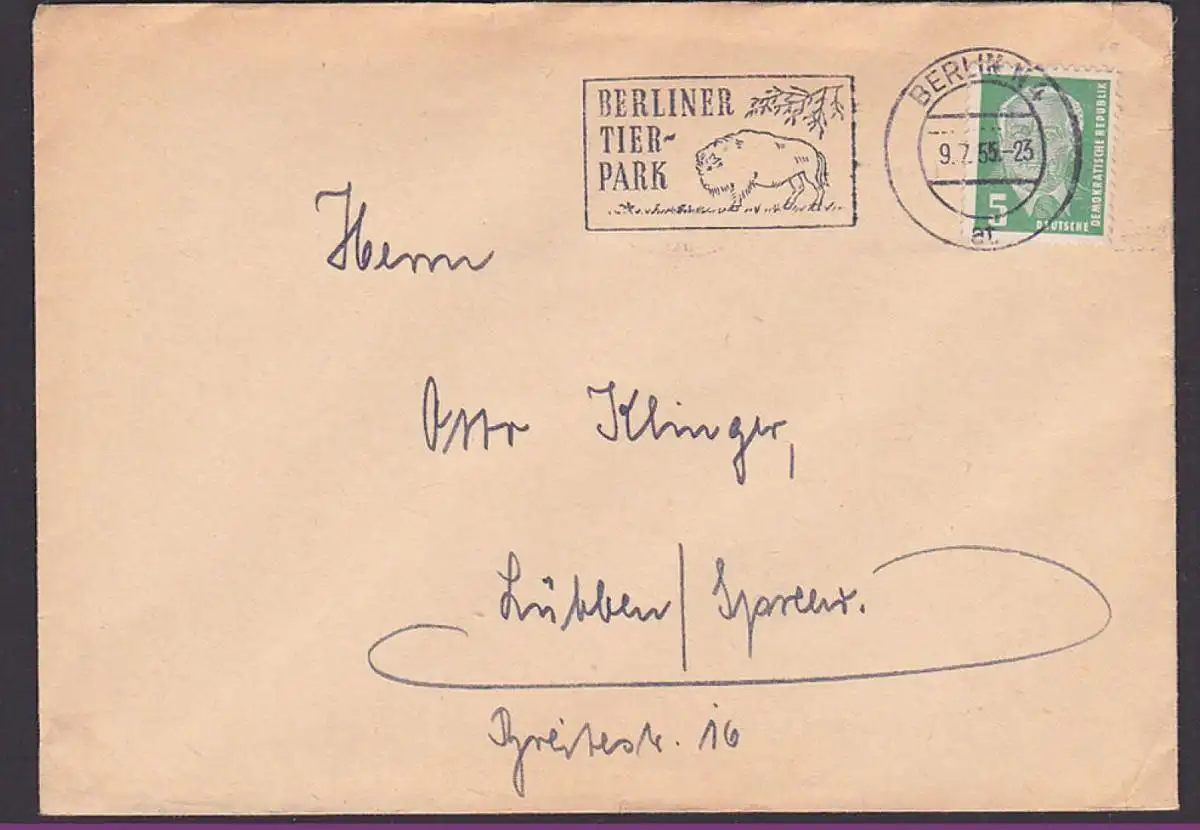 BERLINER
TIER-
PARK
BERLIN N 4
9.7.55.-23
at
5
DEUTSCHE
DEMOKRATISCHE REPUBLIK
Herrn
Otto Klinger,
Lübben/Spreew.
Breitestr. 16